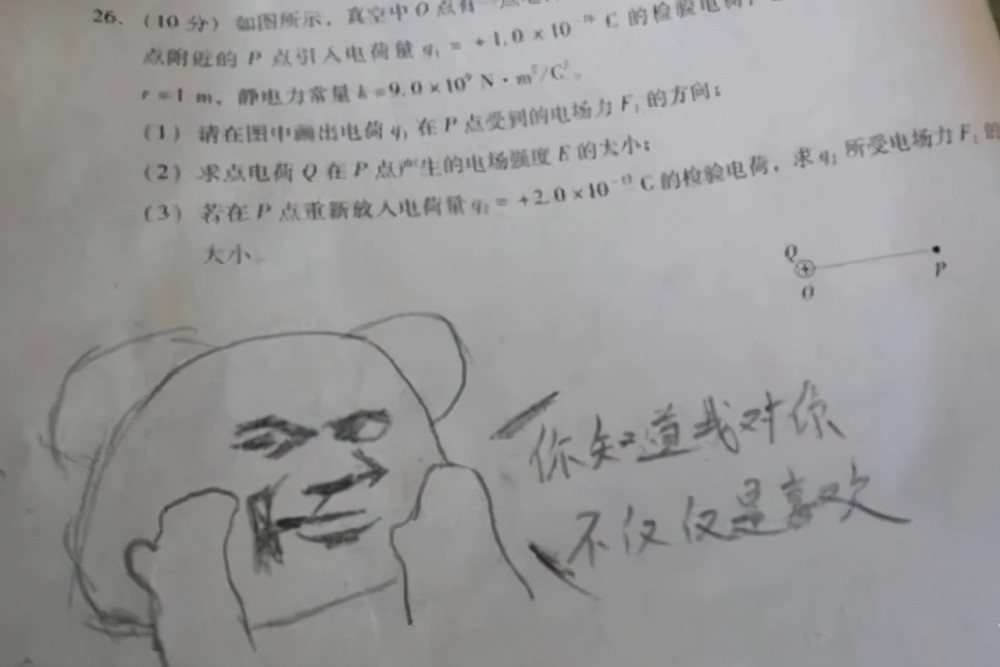 26. (10 分) 如图所示，真空中 O 点有一点电
点附近的 P 点引入电荷量 q₁ = +1.0×10 C 的检验电荷，
r=1 m，静电力常量 k=9.0×10⁹ N·m²/C²。
(1) 请在图中画出电荷 q₁ 在 P 点受到的电场力 F₁ 的方向；
(2) 求点电荷 Q 在 P 点产生的电场强度 E 的大小；
(3) 若在 P 点重新放入电荷量 q₂ = +2.0×10 C 的检验电荷，求 q₂ 所受电场力 F₂ 的
大小。
Q
O
P
你知道我对你
不仅仅是喜欢